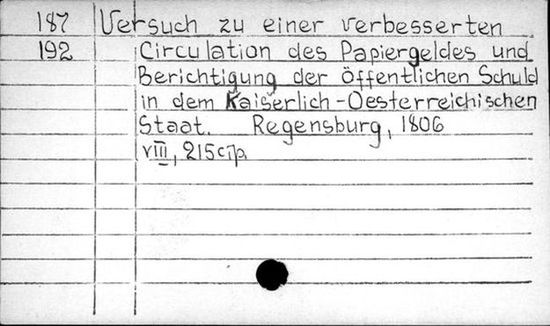 187 Versuch zu einer verbesserten
192 Circulation des Papiergeldes und
Berichtigung der öffentlichen Schuld
in dem Kaiserlich-Oesterreichischen
Staat. Regensburg, 1806
VIII, 215 стр.